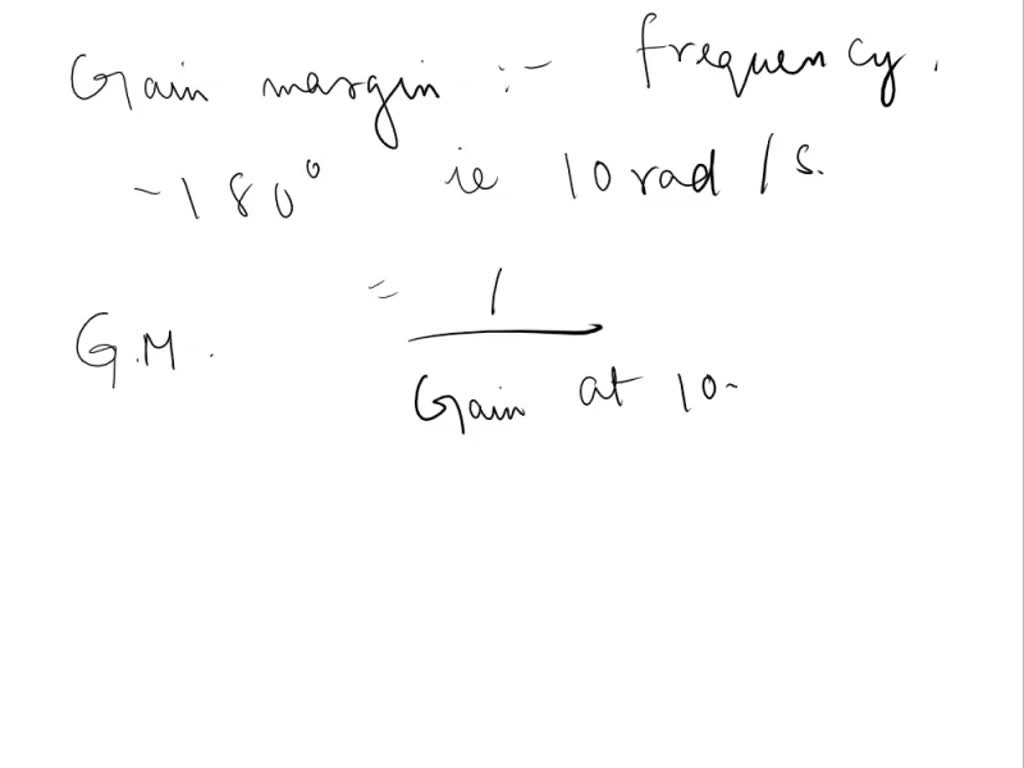 Gain margin :- frequency.
-180° ie 10 rad/s.
G.M. = 1
Gain at 10-